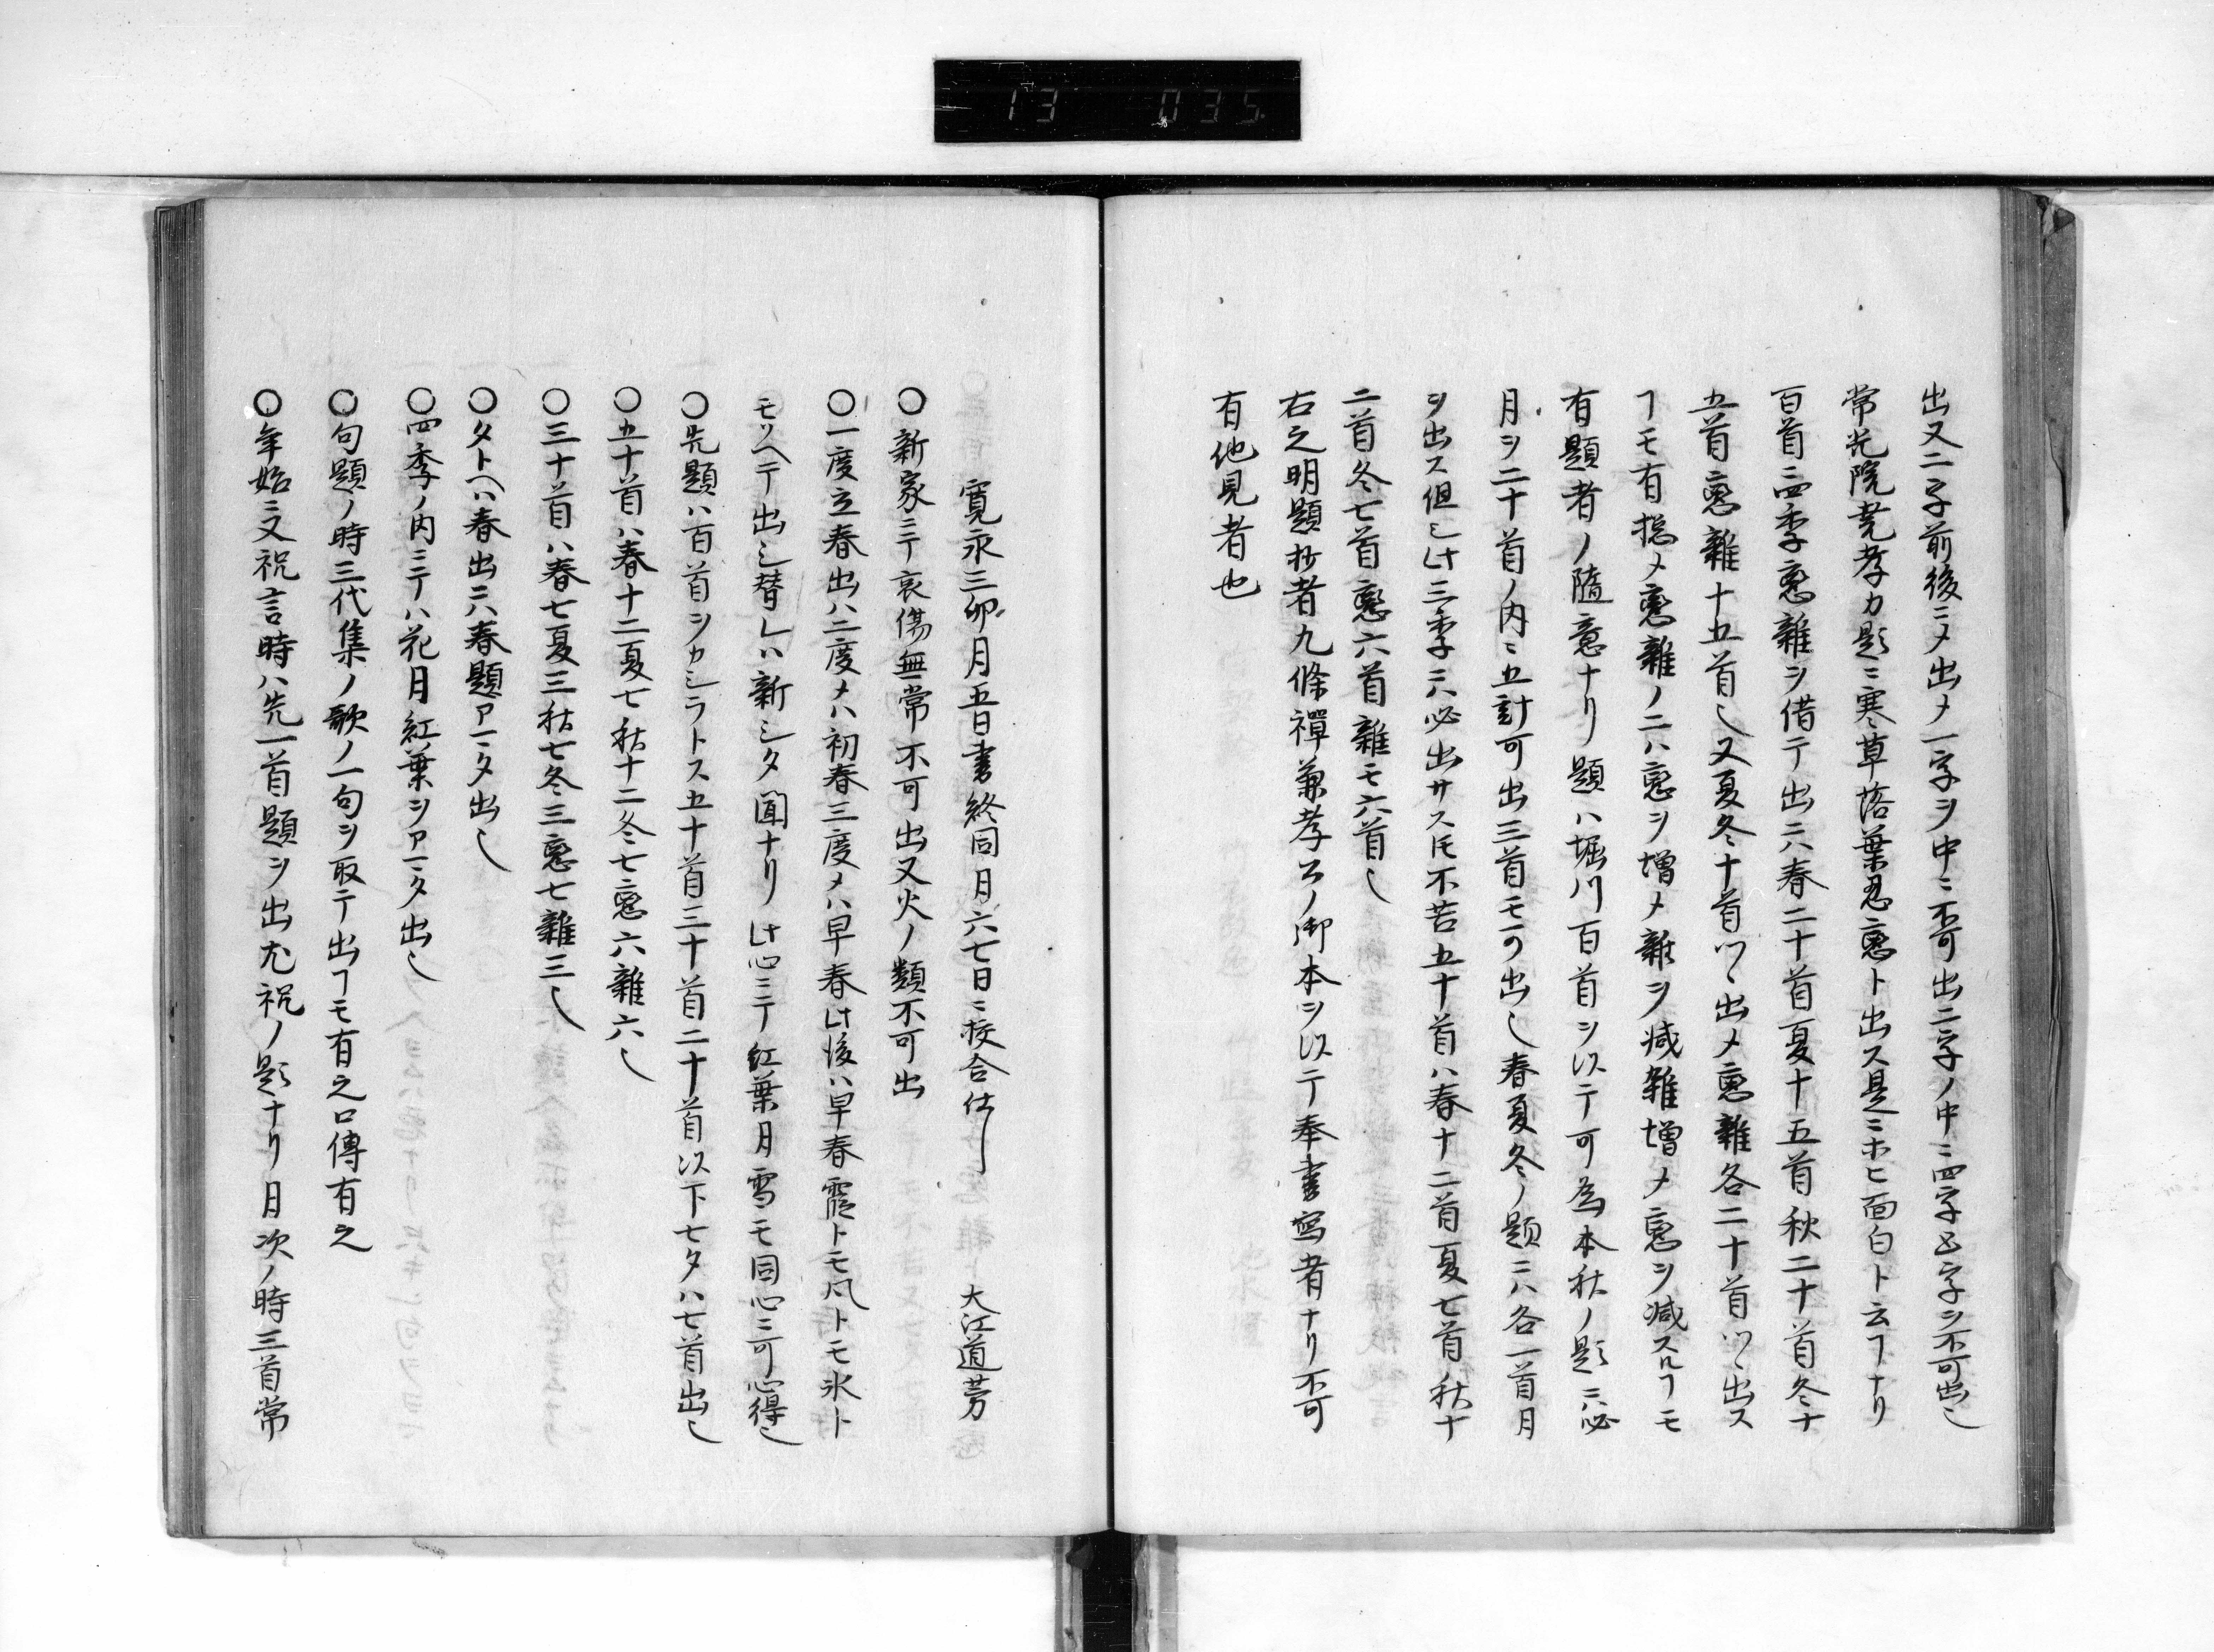 13 035
出又二字前後ニメ出メ一字ヲ中ニ不可出二字ノ中ニ四字五字ヲ不可出也
常光院堯孝カ題ニ寒草落葉忍戀ト出ス是ニホヒ面白ト云ヿナリ
百首ニ四季戀雜ヲ借テ出ニハ春二十首夏十五首秋二十首冬十
五首戀雜十五首也又夏冬十首ツヽ出メ戀雜各二十首ツヽ出ス
ヿモ有惣メ戀雜ノ二ハ戀ヲ増メ雜ヲ减雜増メ戀ヲ减スルヿモ
有題者ノ隨意ナリ題ハ堀川百首ヲ以テ可為本秋ノ題ニハ必
月ヲ二十首ノ内ニ五計可出三首モ可出也春夏冬ノ題ニハ各一首月
ヲ出ス但シ此三季ニハ必出サス𪜈不苦五十首ハ春十二首夏七首秋十
二首冬七首戀六首雜モ六首也
右之明題抄者九條禪兼孝公ノ御本ヲ以テ奉書寫者ナリ不可
有他見者也
寛永三卯月五日書終同月六七日ニ挍合仕 大江道芳
〇新家ニテ哀傷無常不可出又火ノ類不可出
〇一度立春出ハ二度メハ初春三度メハ早春此後ハ早春霞トモ風トモ氷ト
モソヘテ出シ替レハ新シタ聞ナリ此心ニテ紅葉月雪モ同心ニ可心得也
〇先題ハ百首ヲカシラトス五十首三十首二十首以下七夕ハ七首出也
〇五十首ハ春十二夏七秋十二冬七戀六雜六也
〇三十首ハ春七夏三秋七冬三戀七雜三也
〇タトヘハ春出ニハ春題アマタ出也
〇四季ノ内ニテハ花月紅葉ヲアマタ出也
〇句題ノ時三代集ノ歌ノ一句ヲ取テ出ヿモ有之口傳有之
〇年始ニ又祝言時ハ先一首題ヲ出尤祝ノ題ナリ月次ノ時三首常